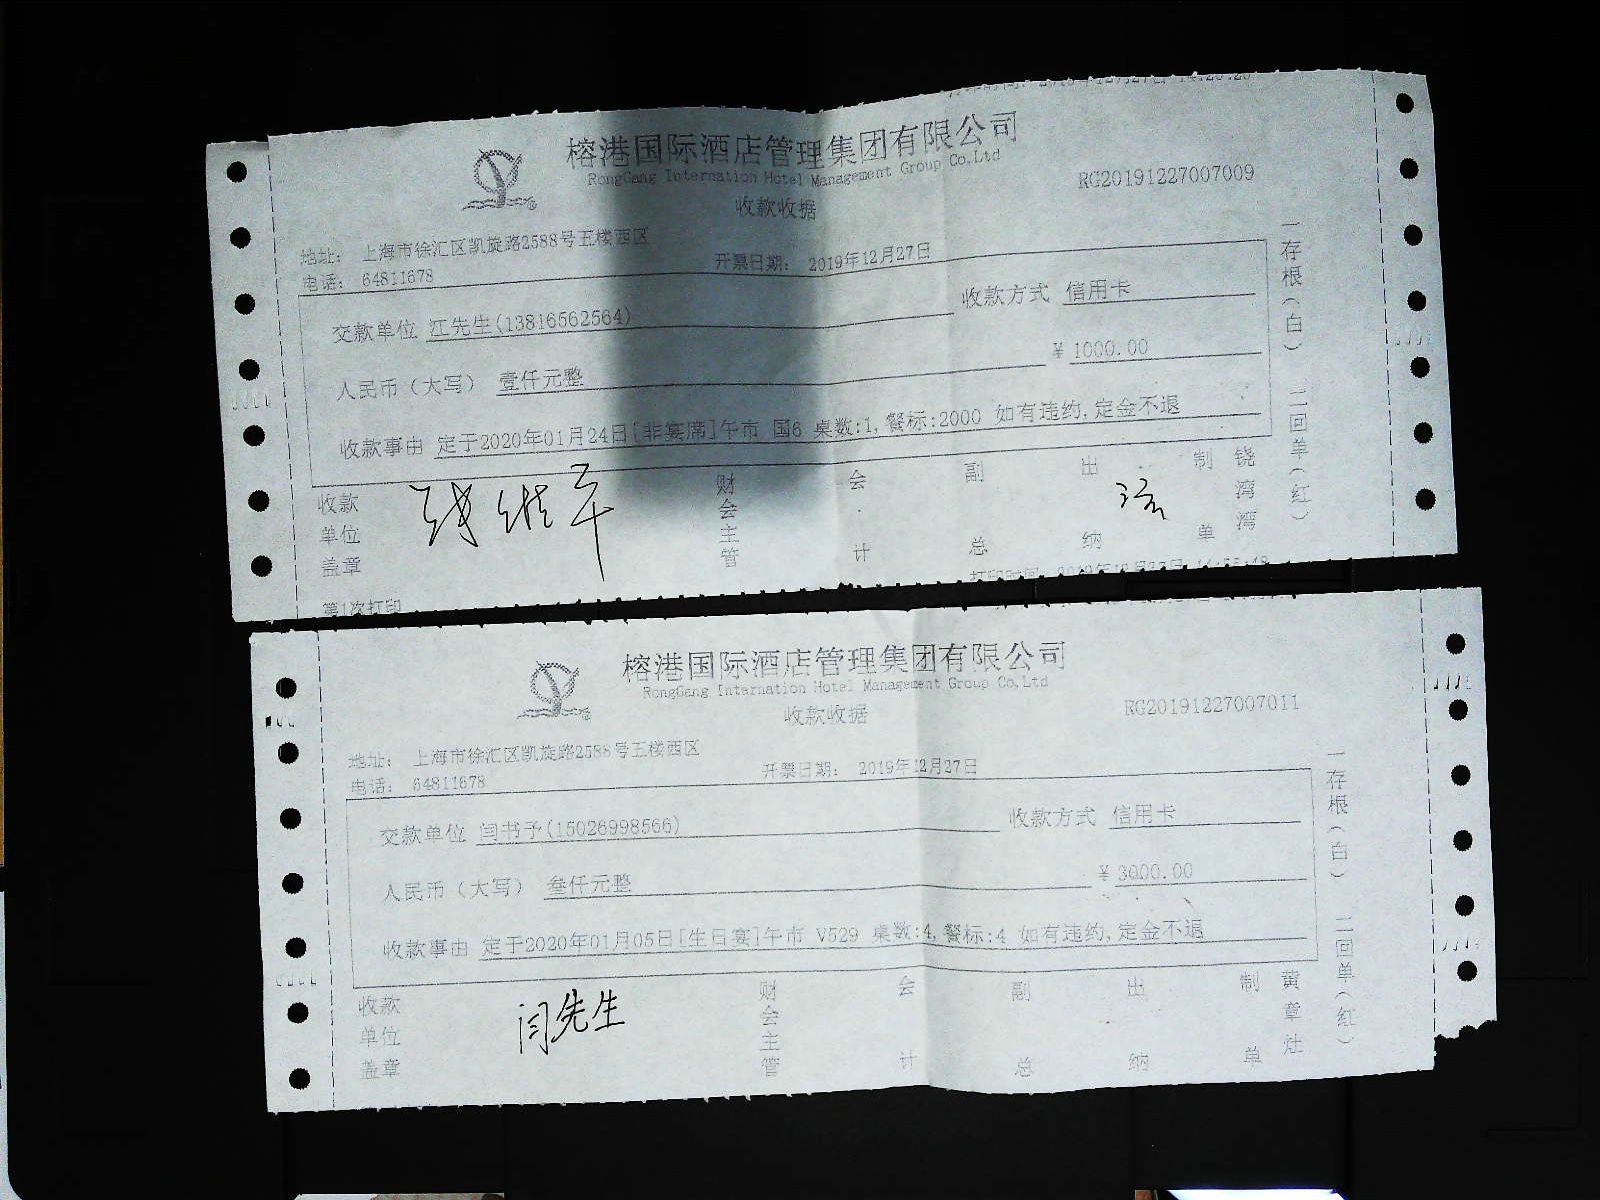 榕港国际酒店管理集团有限公司
RongGang Internation Hotel Management Group Co.Ltd
收款收据
RG20191227007009
地址： 上海市徐汇区凯旋路2588号五楼西区
电话： 64811678
开票日期： 2019年12月27日
交款单位 江先生(13816562564)
收款方式 信用卡
人民币（大写） 壹仟元整
¥ 1000.00
收款事由 定于2020年01月24日[非宴席]午市 国6 桌数:1,餐标:2000 如有违约,定金不退
收款单位盖章
财会主管
会计
副总
出纳
制单
饶湾湾
一存根(白) 二回单(红)
第1次打印
榕港国际酒店管理集团有限公司
RongGang Internation Hotel Management Group Co.Ltd
收款收据
RG20191227007011
地址： 上海市徐汇区凯旋路2588号五楼西区
电话： 64811678
开票日期： 2019年12月27日
交款单位 闫书予(15026998566)
收款方式 信用卡
人民币（大写） 叁仟元整
¥ 3000.00
收款事由 定于2020年01月05日[生日宴]午市 V529 桌数:4,餐标:4 如有违约,定金不退
收款单位盖章
闫先生
财会主管
会计
副总
出纳
制单
黄章灶
一存根(白) 二回单(红)